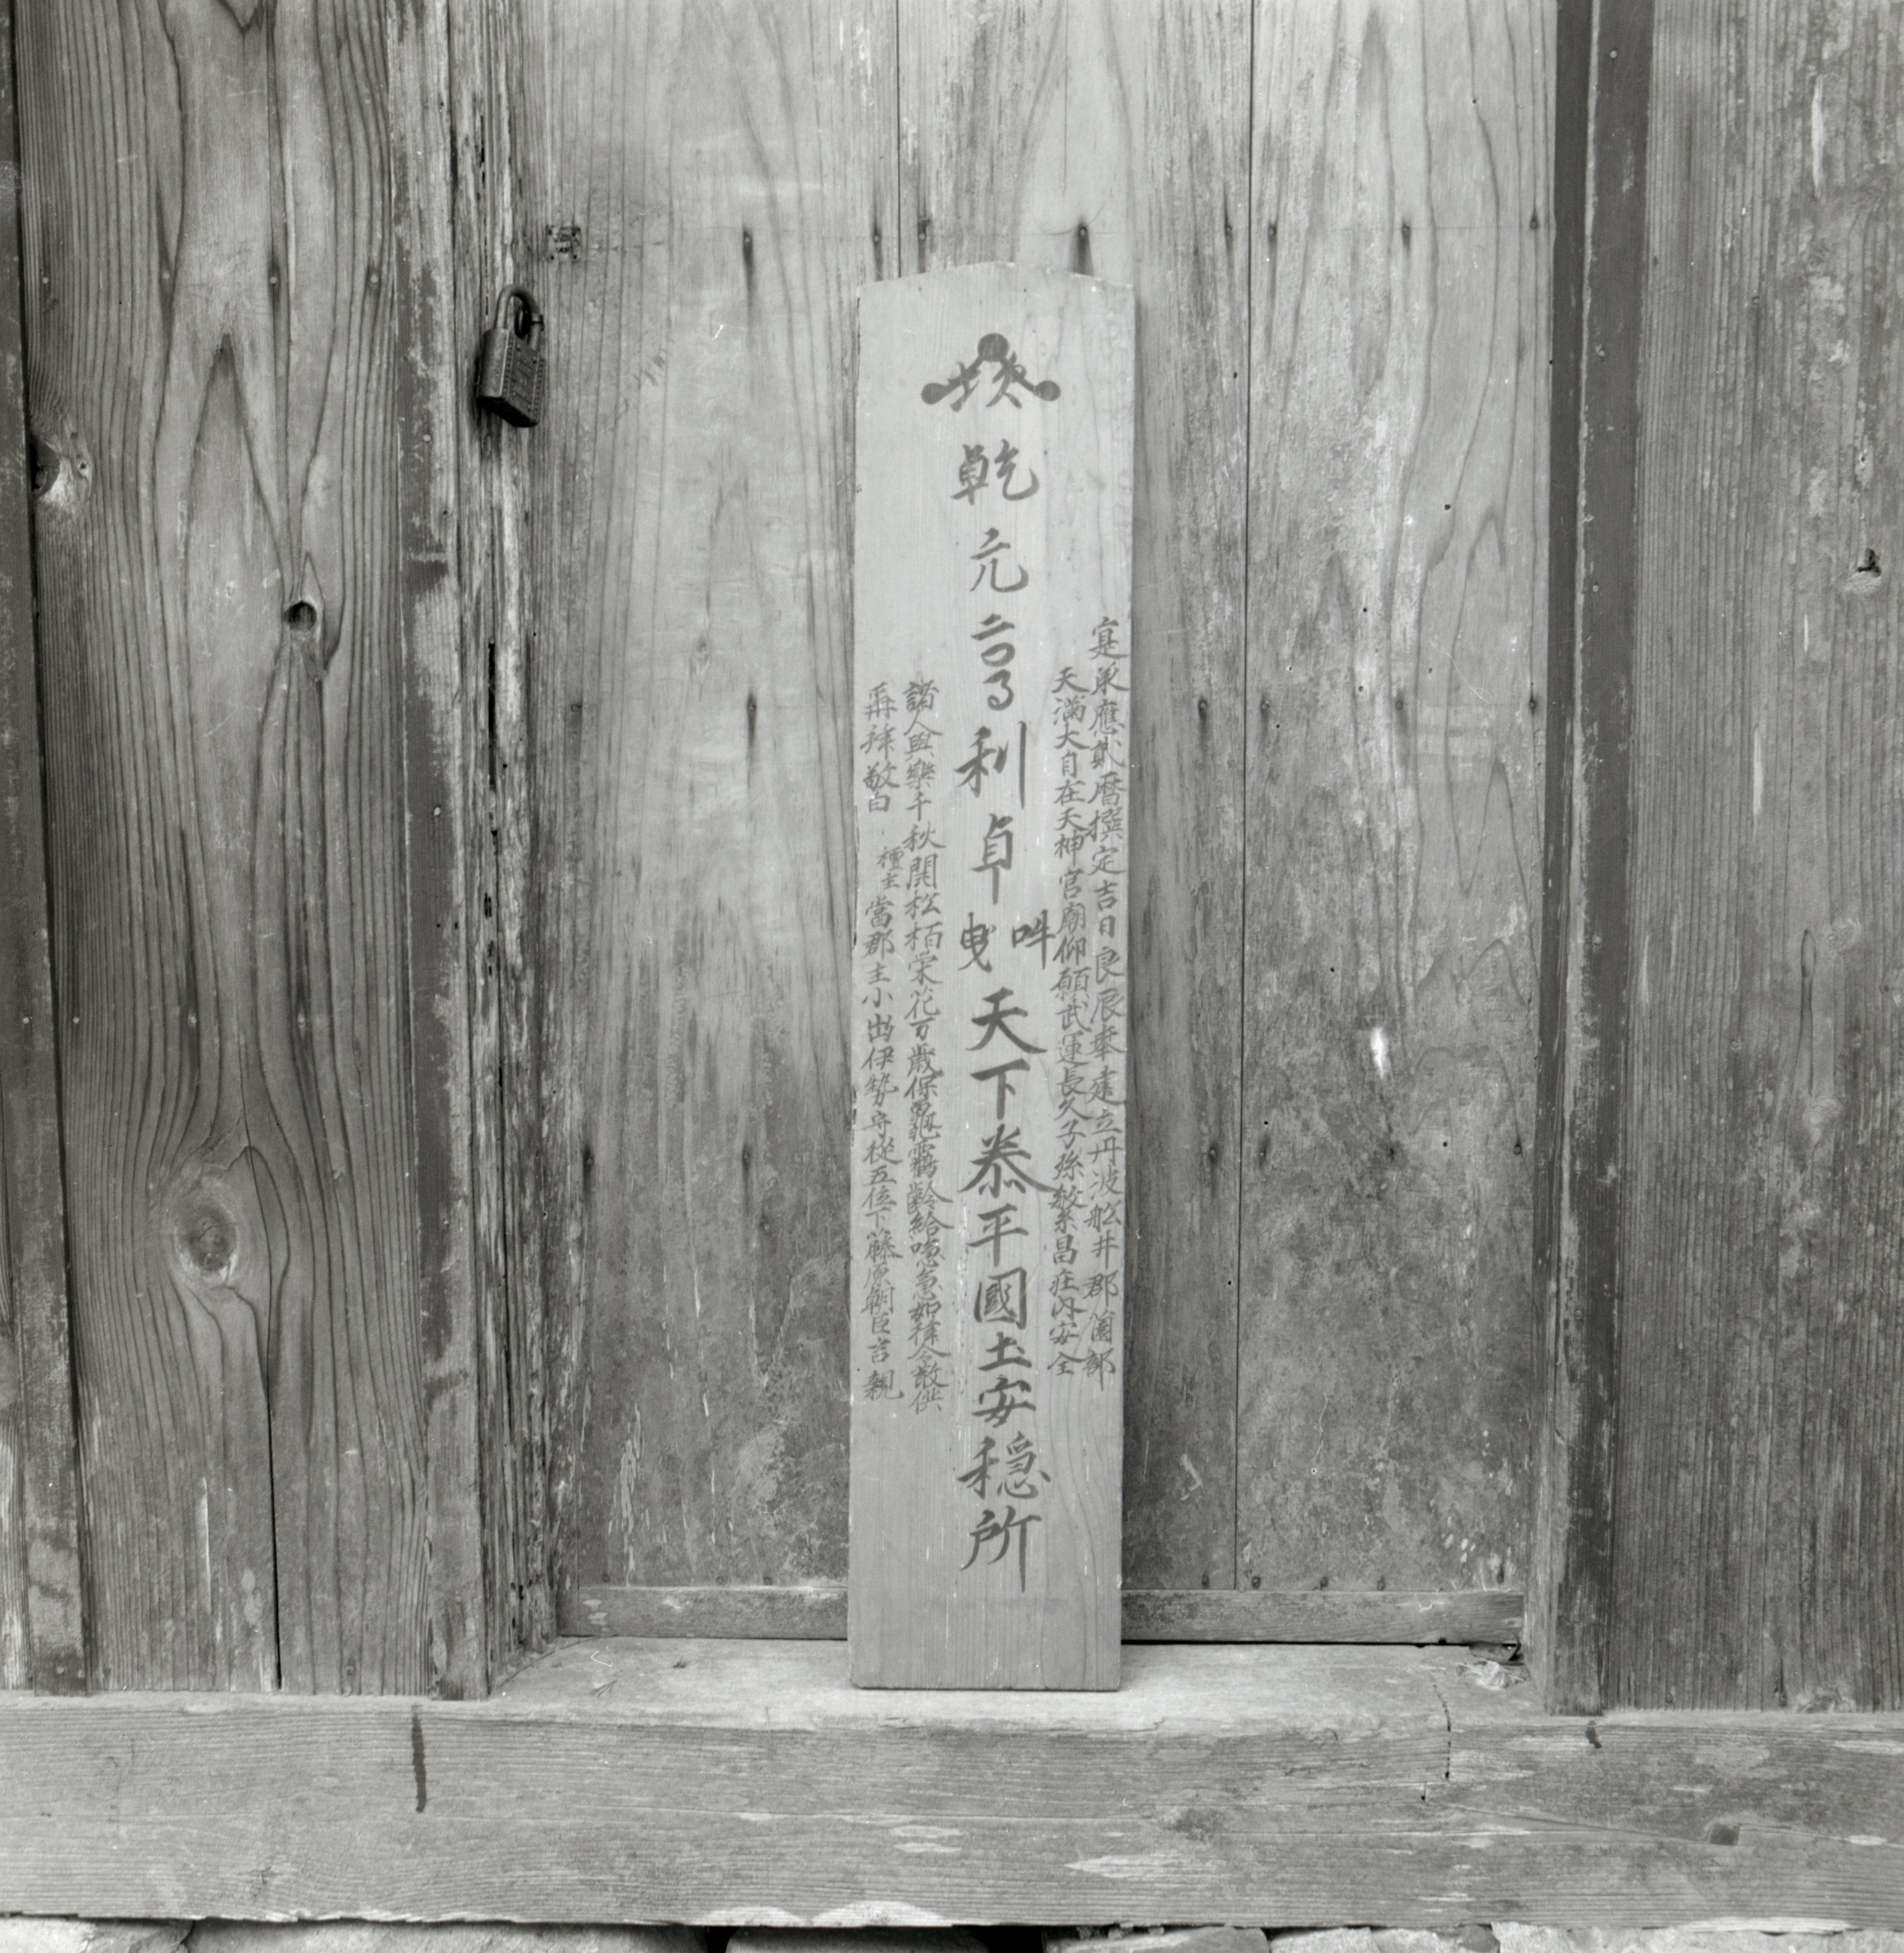 寔承應貳暦撰定吉日良辰奉建立丹波舩井郡園部
天滿大自在天神宮廟仰願武運長久子孫繁昌庄内安全
乾元亨利貞
吽
曳
天下泰平國土安穩所
諸人與樂千秋開松栢栄花万歳保龜靏齡給急如律令敬供
再拜敬白 檀主當郡主小出伊勢守從五位下藤原朝臣吉親